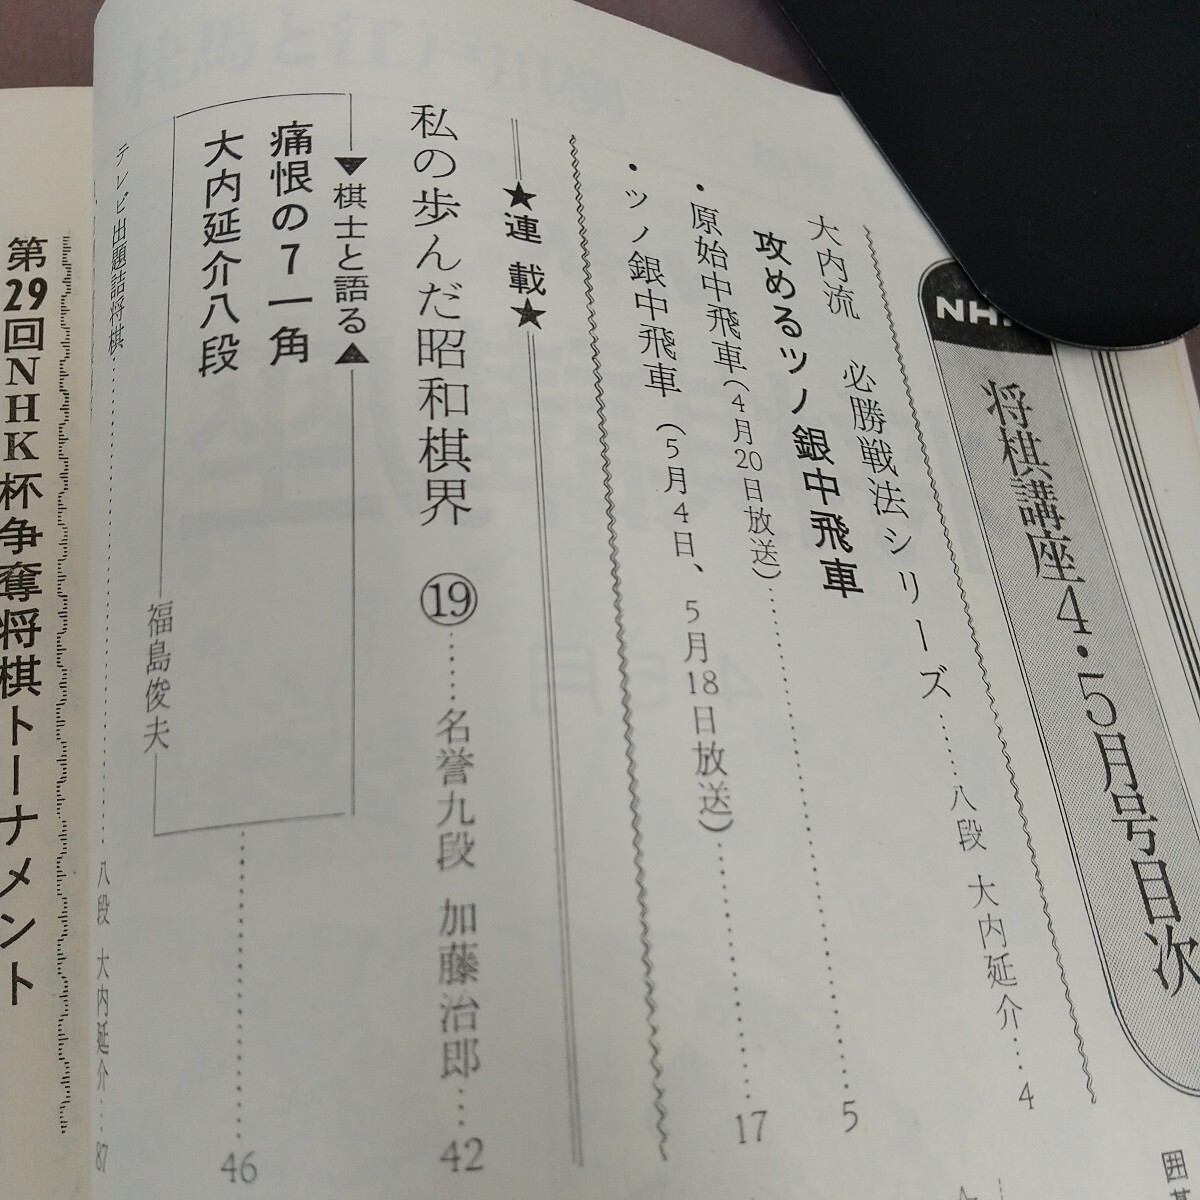 NH
将棋講座4・5月号目次
大内流 必勝戦法シリーズ……八段 大内延介…4
攻めるツノ銀中飛車
・原始中飛車(4月20日放送)……5
・ツノ銀中飛車(5月4日、5月18日放送)……17
★連載★
私の歩んだ昭和棋界 ⑲……名誉九段 加藤治郎…42
▼棋士と語る▲
痛恨の7一角
大内延介八段
福島俊夫
46
テレビ出題詰将棋……八段 大内延介…87
第29回NHK杯争奪将棋トーナメント